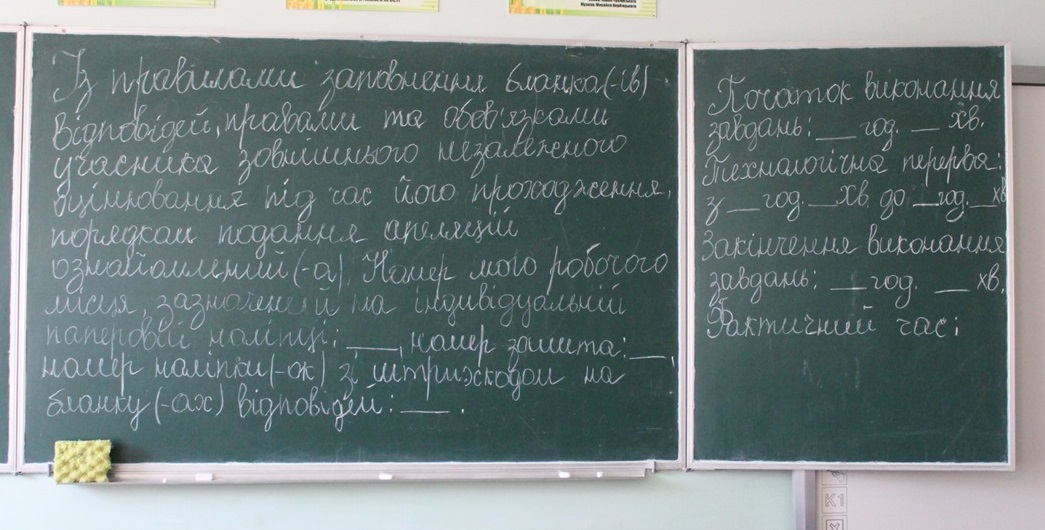 Із правилами заповнення бланка(-ів)
відповідей, правами та обов'язками
учасника зовнішнього незалежного
оцінювання під час його проходження,
порядком подання апеляцій
ознайомлений(-а). Номер мого робочого
місця, зазначений на індивідуальній
паперовій наліпці: ___, номер зошита: ___,
номер наліпки(-ок) зі штрихкодом на
бланку(-ах) відповідей: ___ .
Початок виконання
завдань: __ год. __ хв.
Технологічна перерва:
з __ год. __ хв. до __ год. __ хв
Закінчення виконання
завдань: __ год. __ хв.
Фактичний час:
K1